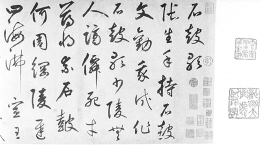 石鼓歌
張生手持石鼓
文勸我試作
石鼓歌少陵無
人謫僊死才
薄將奈石鼓
何周綱陵遲
四海沸宣王